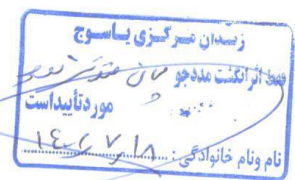 زندان مرکزی یاسوج
فقط اثر انگشت مددجو
مورد تأیید است
نام و نام خانوادگی: ۱۴۰۲/۷/۱۸